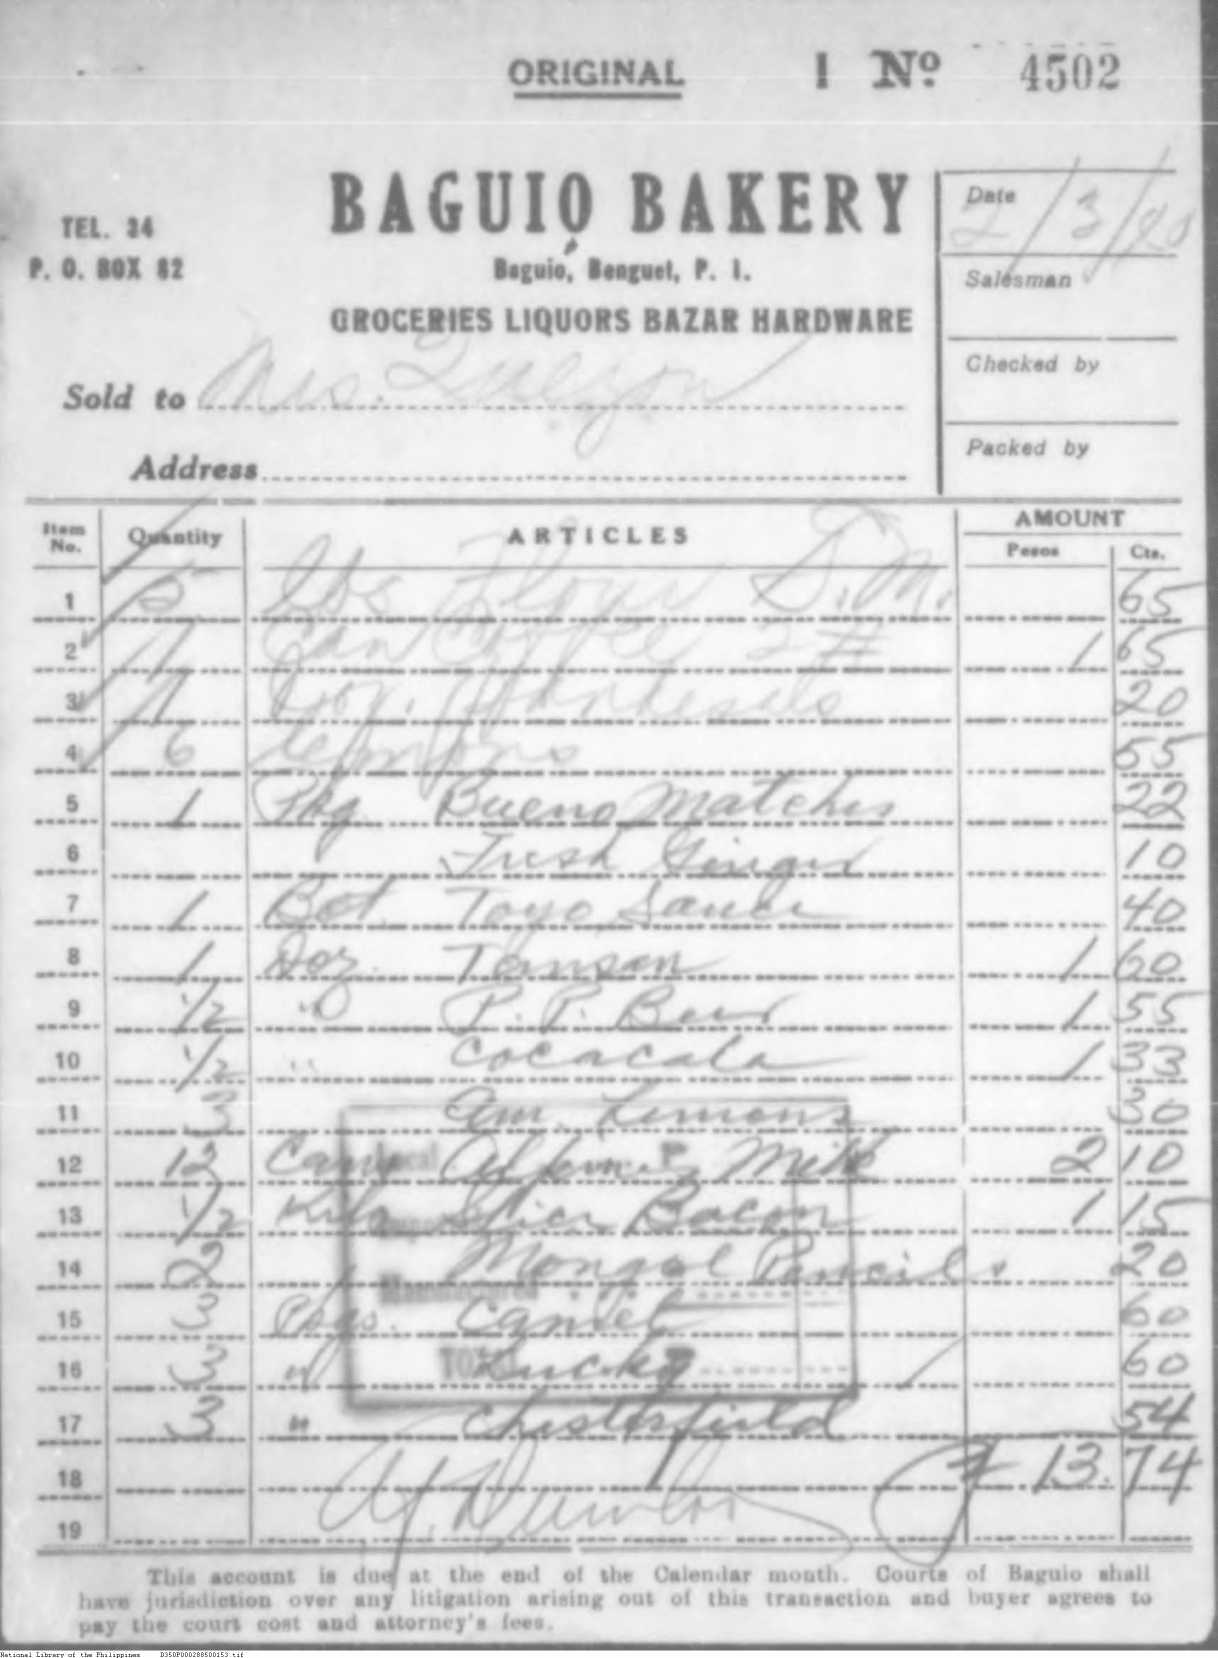 ORIGINAL I Nº 4502
BAGUIO BAKERY
TEL. 34
P. O. BOX 82
Baguio, Benguet, P. I.
GROCERIES LIQUORS BAZAR HARDWARE
Date 2/3/
Salesman
Checked by
Packed by
Sold to Mrs. Quezon
Address
Item No. Quantity ARTICLES AMOUNT Pesos Cts.
1 5 lbs Flour S.M. 65
2 1 Can Coffee 2# 1 65
3 1 Doz. 20
4 6 Lemons 55
5 1 Pkg. Bueno Matches 22
6 Fresh Ginger 10
7 1 Bot. Toyo Sauce 40
8 1 Doz. Tansan 1 60
9 1/2 " P. P. Beer 1 55
10 1/2 " Cocacola 1 33
11 3 Am. Lemons 30
12 12 Cans Milk 2 10
13 1/2 Kilo Bacon 1 15
14 2 Mongol Pencils 20
15 3 Pkgs. Camel 60
16 3 " Lucky 60
17 3 " Chesterfield 54
18 ₱ 13.74
19
Local
Manufactured
TOTAL
This account is due at the end of the Calendar month. Courts of Baguio shall
have jurisdiction over any litigation arising out of this transaction and buyer agrees to
pay the court cost and attorney's fees.
National Library of the Philippines D350P000288500153.tif